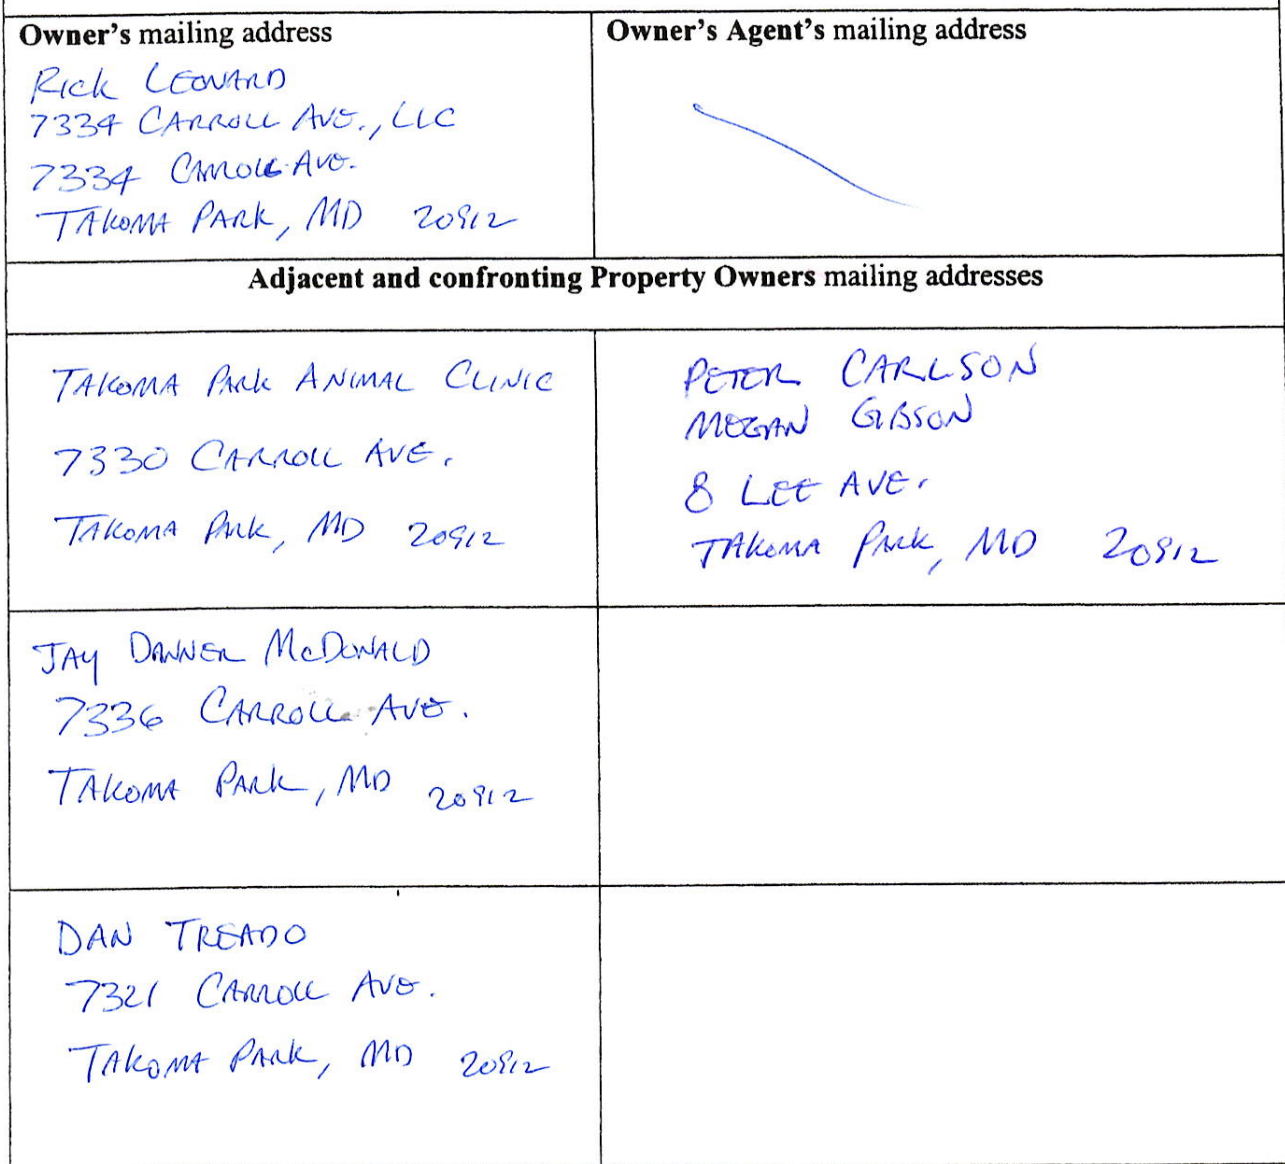 Owner's mailing address
Rick LEONARD
7334 CARROLL AVE., LLC
7334 CARROLL AVE.
TAKOMA PARK, MD 20912
Owner's Agent's mailing address
Adjacent and confronting Property Owners mailing addresses
TAKOMA PARK ANIMAL CLINIC
7330 CARROLL AVE.
TAKOMA PARK, MD 20912
PETER CARLSON
MEGAN GIBSON
8 LEE AVE.
TAKOMA PARK, MD 20912
JAY DANNER McDONALD
7336 CARROLL AVE.
TAKOMA PARK, MD 20912
DAN TREADO
7321 CARROLL AVE.
TAKOMA PARK, MD 20912